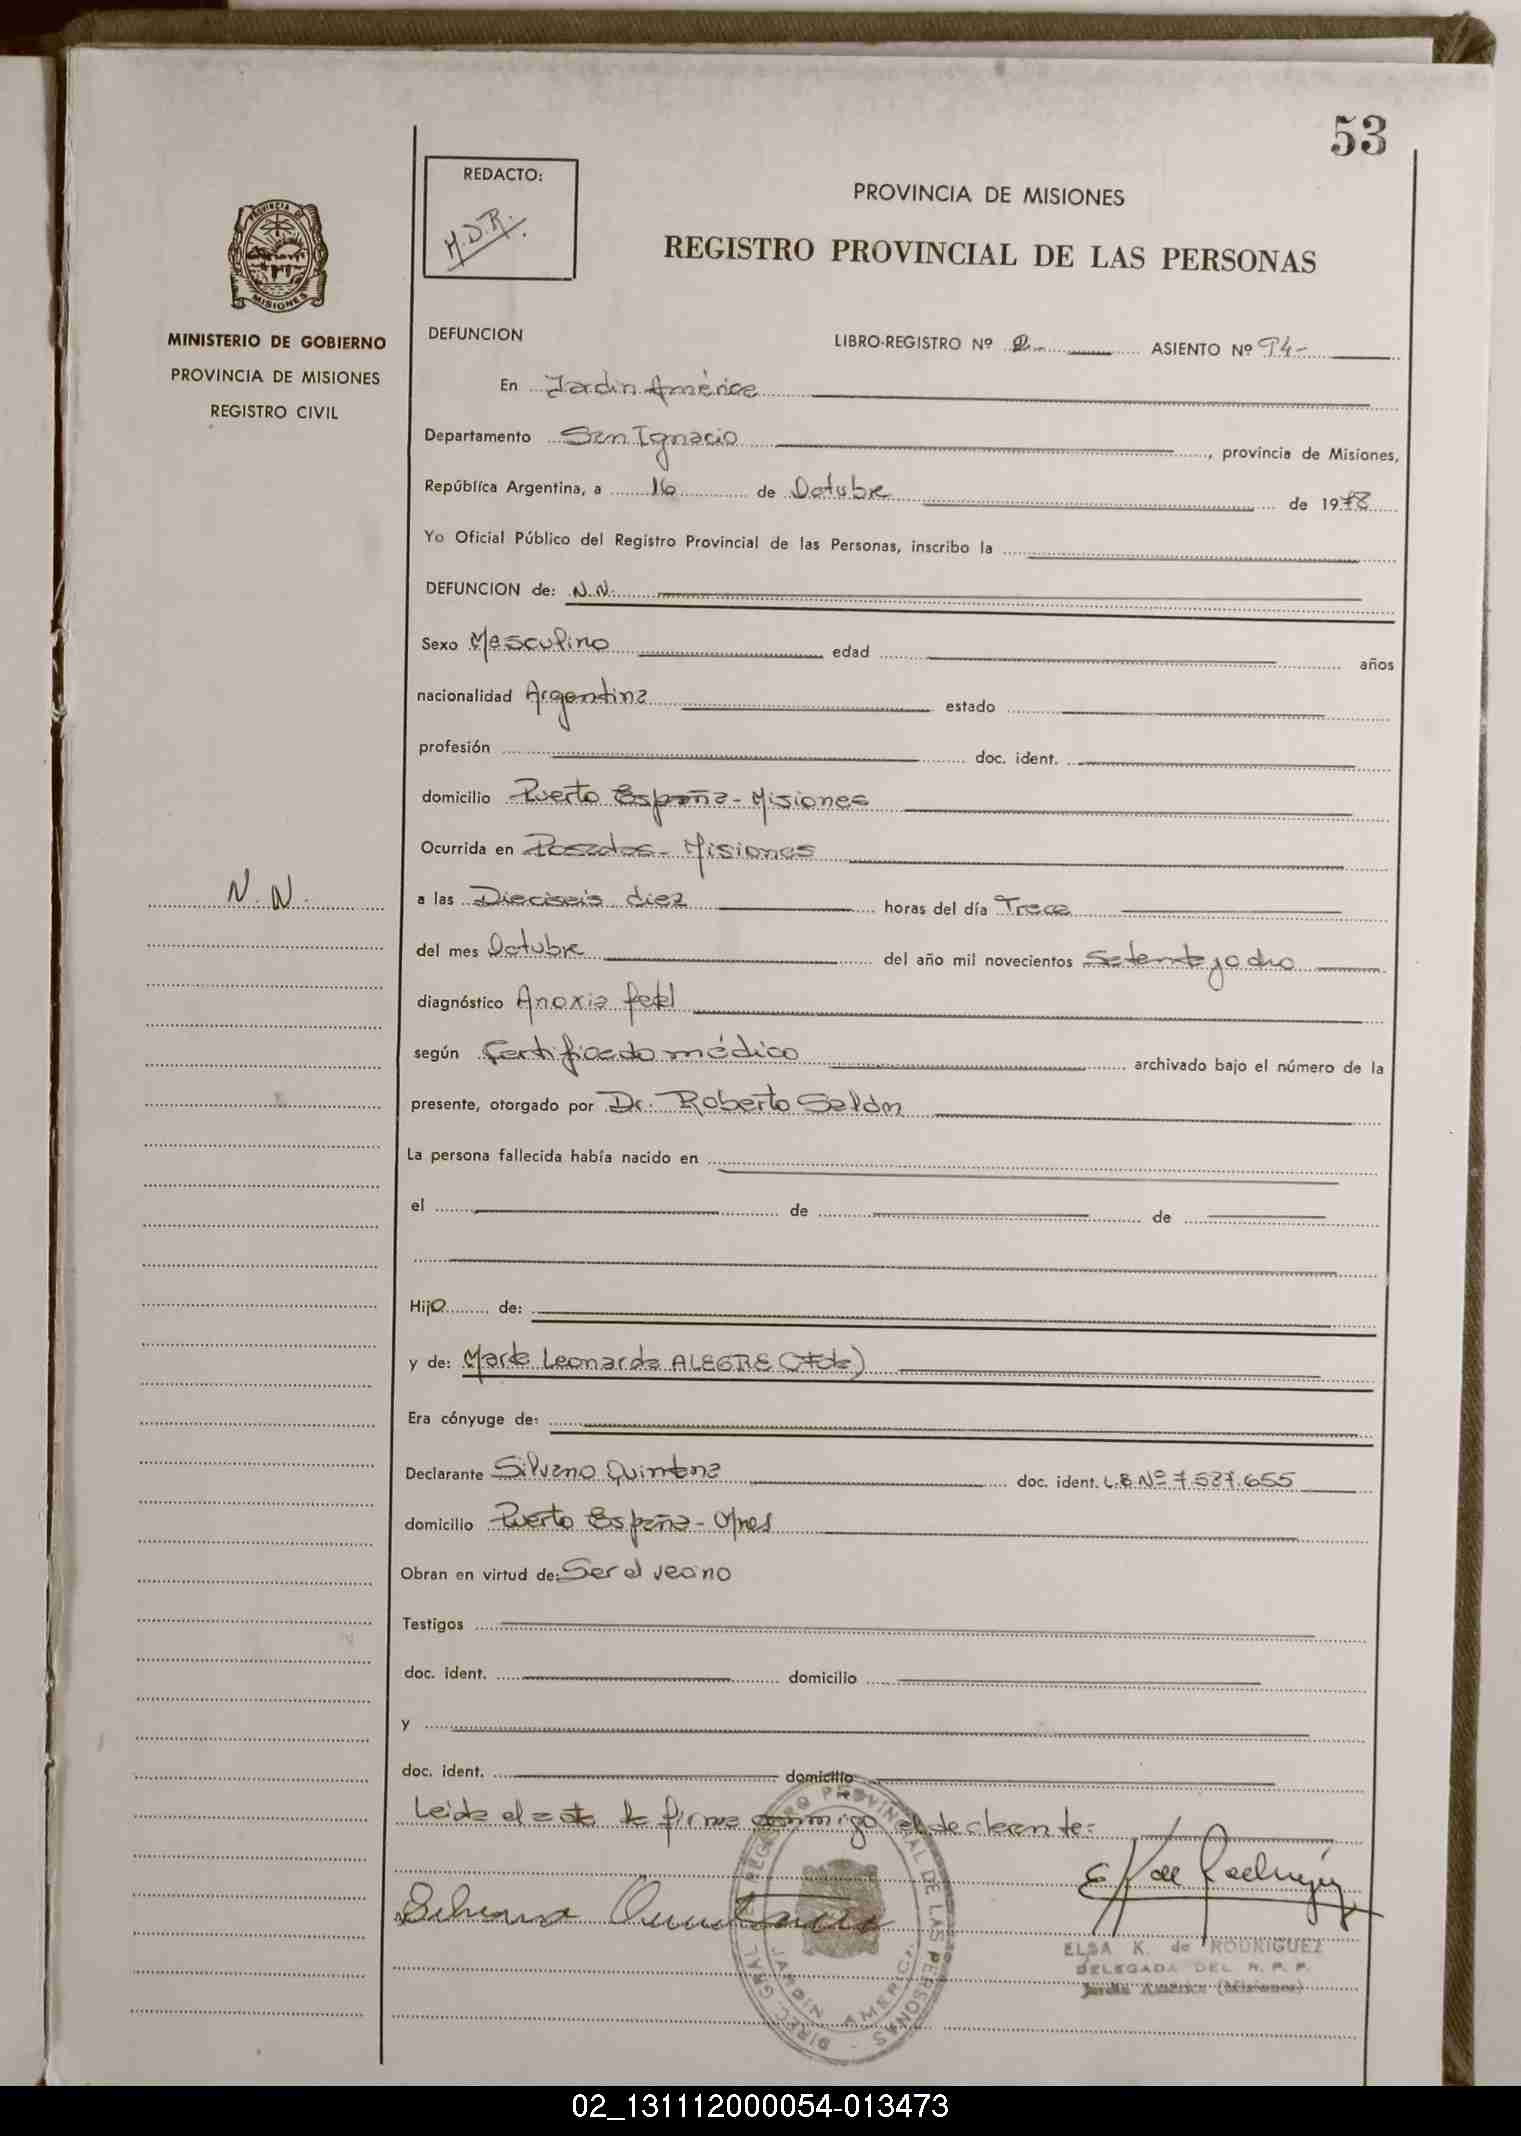 53
REDACTO:
M.D.R.
PROVINCIA DE MISIONES
REGISTRO PROVINCIAL DE LAS PERSONAS
PROVINCIA DE
MISIONES
MINISTERIO DE GOBIERNO
PROVINCIA DE MISIONES
REGISTRO CIVIL
DEFUNCION
LIBRO-REGISTRO Nº 2 ASIENTO Nº 94-
En Jardin América
Departamento San Ignacio, provincia de Misiones,
República Argentina, a 16 de Octubre de 1978
Yo Oficial Público del Registro Provincial de las Personas, inscribo la
DEFUNCION de: N.N.
Sexo Masculino edad años
nacionalidad Argentina estado
profesión doc. ident.
domicilio Puerto España - Misiones
Ocurrida en Posadas - Misiones
N.N.
a las Dieciseis diez horas del día Trece
del mes Octubre del año mil novecientos Setenta y ocho
diagnóstico Anoxia fetal
según Certificado médico archivado bajo el número de la
presente, otorgado por Dr. Roberto
La persona fallecida había nacido en
el de de
Hijo de:
y de: Marta Leonarda ALEGRE (Fda)
Era cónyuge de:
Declarante Silvano Quintana doc. ident. L.E Nº 7.527.655
domicilio Puerto España - Mnes
Obran en virtud de: Ser el vecino
Testigos
doc. ident. domicilio
y
doc. ident. domicilio
Leida el acta la firma conmigo el declarante:
Silvano Quintana
E K de Rodriguez
ELSA K. de RODRIGUEZ
DELEGADA DEL R. P. P.
Jardín América (Misiones)
DIREC. GRAL. REGISTRO PROVINCIAL DE LAS PERSONAS
JARDIN AMERICA
02_131112000054-013473